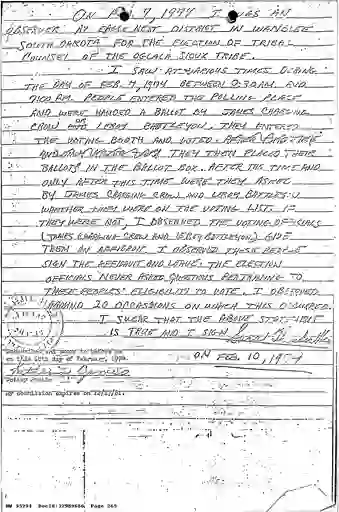 ON FEB 7, 1974 I WAS AN
OBSERVER AT EAGLE NEST DISTRICT IN WANBLEE
SOUTH DAKOTA FOR THE ELECTION OF TRIBAL
COUNSEL OF THE OGLALA SIOUX TRIBE.
I SAW AT VARIOUS TIMES DURING
THE DAY OF FEB. 7, 1974 BETWEEN 9:30 A.M. AND
P.M. PEOPLE ENTERED THE POLLING PLACE
AND WERE HANDED A BALLOT BY JAMES CHARGING
CROW OR LEROY BATTLEYON. THEY ENTERED
THE VOTING BOOTH AND VOTED.
THEY THEN PLACED THEIR
BALLOTS IN THE BALLOT BOX. AFTER THIS TIME AND
ONLY AFTER THIS TIME WERE THEY ASKED
BY JAMES CHARGING CROW AND LEROY
WHETHER THEY WERE ON THE VOTING LIST. IF
THEY WERE NOT, I OBSERVED THE VOTING OFFICIALS
(JAMES CHARGING CROW AND LEROY BATTLEYON) GIVE
THEM AN AFFIDAVIT. I OBSERVED THESE PEOPLE
SIGN THE AFFIDAVIT AND LEAVE. THE ELECTION
OFFICIALS NEVER ASKED QUESTIONS PERTAINING TO
THESE PEOPLES' ELIGIBILITY TO VOTE. I OBSERVED
AROUND 20 OCCASIONS ON WHICH THIS OCCURRED.
I SWEAR THAT THE ABOVE STATEMENT
IS TRUE AND I SIGN
ON FEB 10, 1974
Subscribed and sworn to before me
on this 10th day of February, 1974.
Notary Public
My commission expires on
Page 265